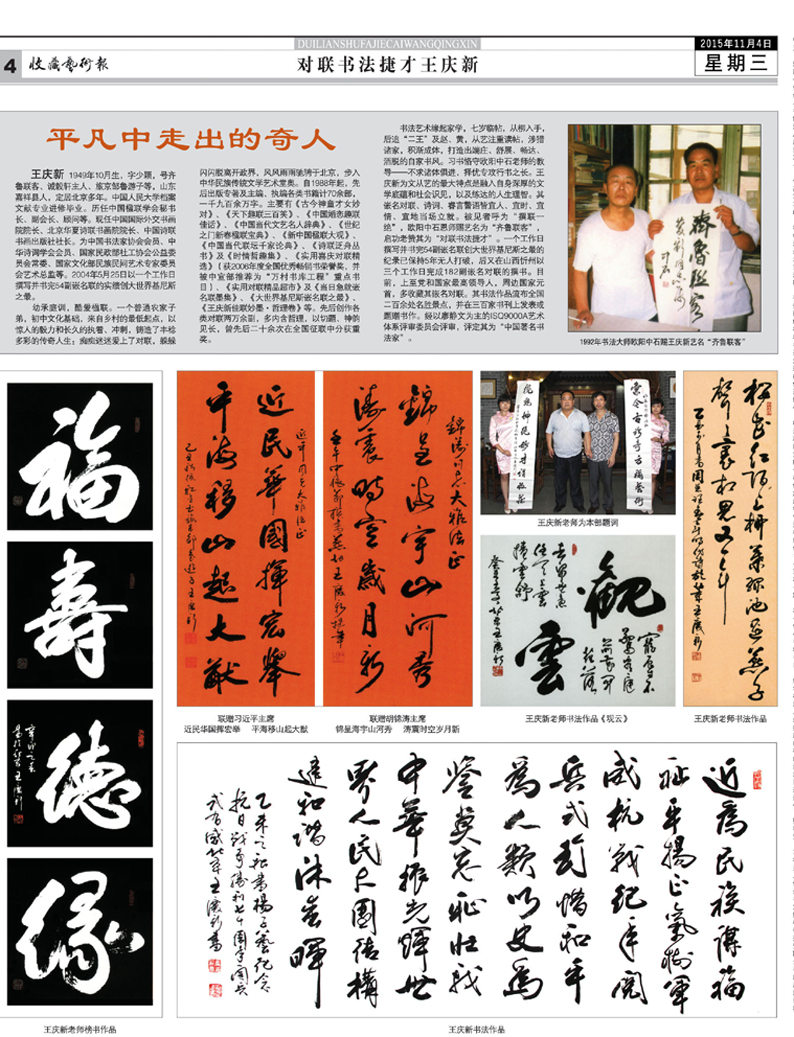 DUILIANSHUFAJIECAIWANGQINGXIN
4
收藏艺术报
对联书法捷才王庆新
2015年11月4日
星期三
平凡中走出的奇人
王庆新 1949年10月生，字少颖，号齐
鲁联客、诚毅轩主人、旅京郁鲁游子等，山东
嘉祥县人，定居北京多年。中国人民大学档案
文献专业进修毕业。历任中国楹联学会秘书
长、副会长、顾问等。现任中国国际外交书画
院院长、北京华夏诗联书画院院长、中国诗联
书画出版社社长。为中国书法家协会会员、中
华诗词学会会员、国家民政部社工协会公益委
员会常委、国家文化部民族民间艺术专家委员
会艺术总监等。2004年5月25日以一个工作日
撰写并书完54副嵌名联的实绩创大世界基尼斯
之最。
幼承庭训，酷爱楹联。一个普通农家子
弟，初中文化基础，来自乡村的最低起点，以
惊人的毅力和长久的执着、冲刺，铸造了丰稔
多彩的传奇人生；痴痴迷迷爱上了对联，躲躲
闪闪脱离开政界，风风雨雨驰骋于北京，步入
中华民族传统文学艺术堂奥。自1988年起，先
后出版专著及主编、执编各类书籍计70余部，
一千九百余万字。主要有《古今神童才女妙
对》、《天下趣联三百笑》、《中国婚恋趣联
佳话》、《中国当代文艺名人辞典》、《世纪
之门新春楹联宝典》、《新中国楹联大观》、
《中国当代联坛千家论典》、《诗联泛舟丛
书》及《时情哲趣集》、《实用喜庆对联精
选》（获2006年度全国优秀畅销书荣誉奖，并
被中宣部推荐为“万村书库工程”重点书
目）、《实用对联精品超市》及《当日急就嵌
名联墨集》、《大世界基尼斯嵌名联之最》、
《王庆新佳联妙墨·哲理卷》等。先后创作各
类对联两万余副，多内含哲理，以切题、神韵
见长，曾先后二十余次在全国征联中分获重
奖。
书法艺术缘起家学，七岁临帖，从柳入手，
后追“二王”及赵、黄，从艺注重读帖，涉猎
诸家，积渐成体，打造出端庄、舒展、畅达、
洒脱的自家书风。习书恪守欧阳中石老师的教
导——不求诸体俱进，择优专攻行书之长。王
庆新为文从艺的最大特点是融入自身深厚的文
学底蕴和社会识见，以及练达的人生理智。其
嵌名对联、诗词、睿言警语皆宜人、宜时、宜
情、宜地当场立就。被见者呼为“撰联一
绝”，欧阳中石恩师赐艺名为“齐鲁联客”，
启功老赞其为“对联书法捷才”。一个工作日
撰写并书完54副嵌名联创大世界基尼斯之最的
纪录已保持5年无人打破，后又在山西忻州以
三个工作日完成182副嵌名对联的撰书。目
前，上至党和国家最高领导人，周边国家元
首，多收藏其嵌名对联。其书法作品流布全国
二百余处名胜景点，并在三百家书刊上发表或
题赠书作。经以廖静文为主的ISQ9000A艺术
体系评审委员会评审，评定其为“中国著名书
法家”。
齐鲁联客
1992年书法大师欧阳中石赐王庆新艺名“齐鲁联客”
福
寿
德
缘
王庆新老师榜书作品
近民华国挥宏举
平海移山起大猷
近平同志大雅法正
联赠习近平主席
近民华国挥宏举 平海移山起大猷
锦涛同志大雅法正
锦呈海宇山河秀
涛震时空岁月新
联赠胡锦涛主席
锦呈海宇山河秀 涛震时空岁月新
王庆新老师为本部题词
观云
王庆新老师书法作品《观云》
王庆新老师书法作品
近为民族谋福
祉平扬正气树军
威抗战纪年阅
兵式彰惜和平
为人类以史为
鉴莫忘耻壮我
中华振光辉世
界人民大团结构
建和谐沐春晖
王庆新书法作品